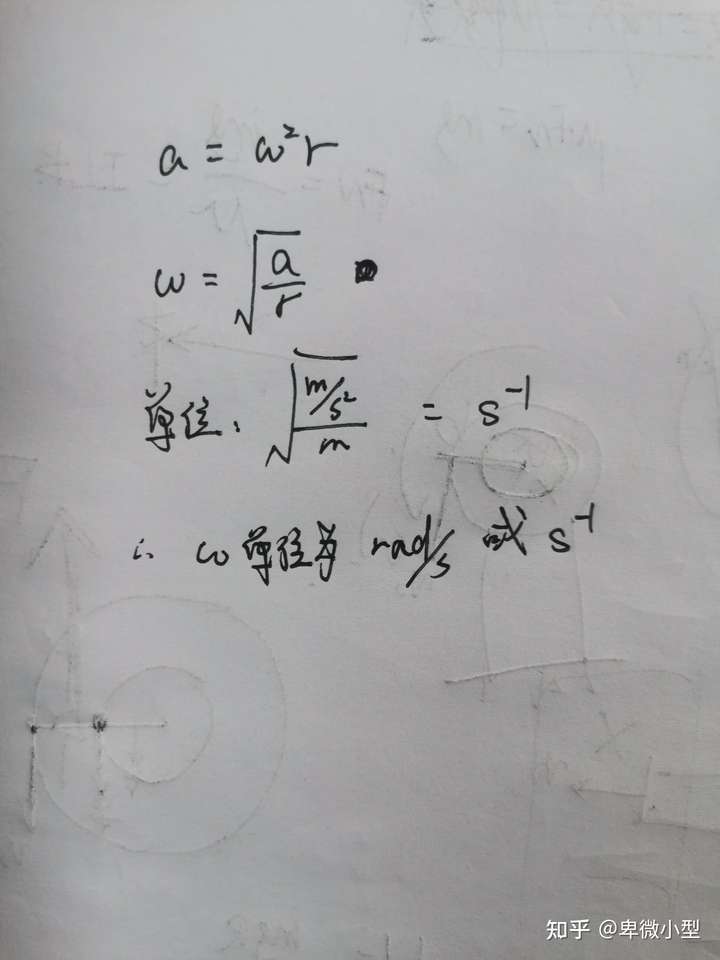 a = ω²r
ω = √(a/r)
单位: √((m/s²)/m) = s⁻¹
∴ ω单位为 rad/s 或 s⁻¹
知乎 @卑微小型